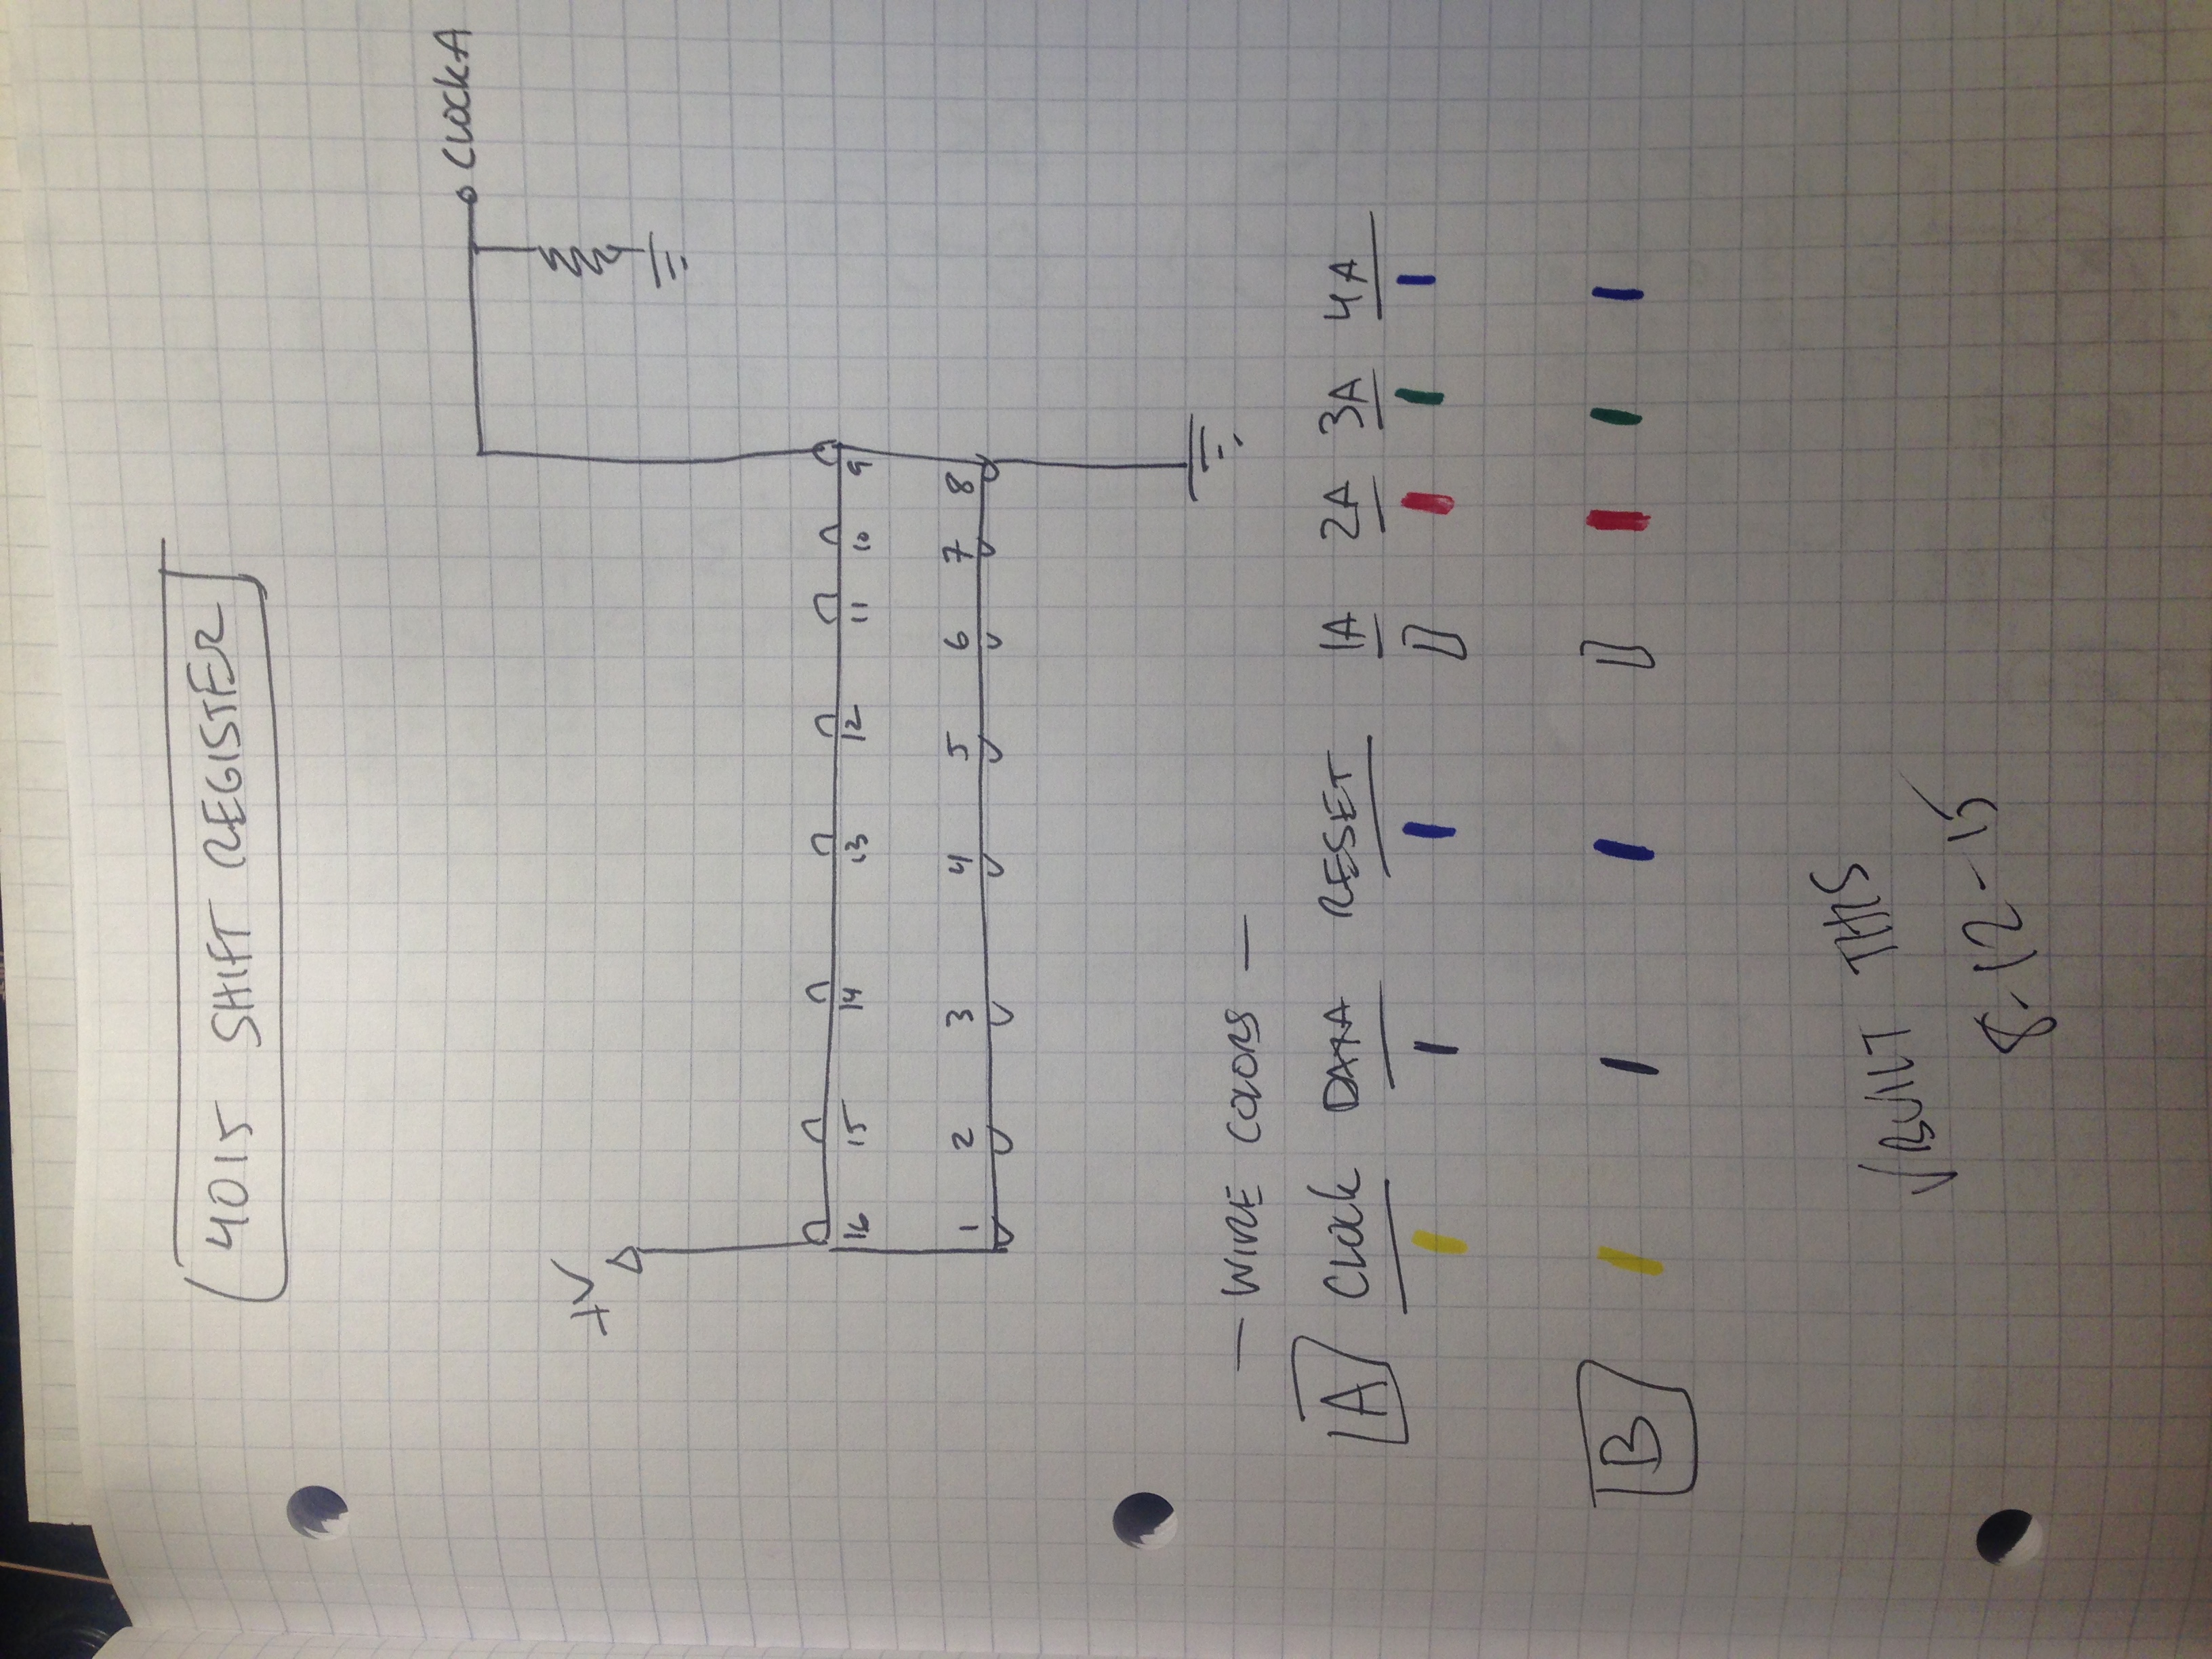 4015 SHIFT REGISTER
CLOCK A
+V
16 15 14 13 12 11 10 9
1 2 3 4 5 6 7 8
— WIRE COLORS —
A CLOCK DATA RESET 1A 2A 3A 4A
B
√ BUILT THIS
8-12-15